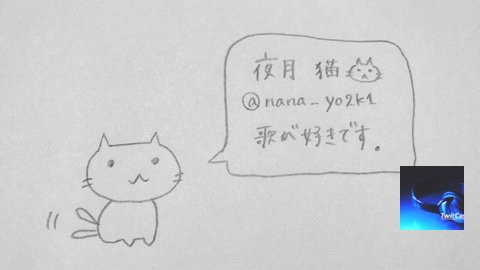 夜月 猫
@nana_yo2k1
歌が好きです。
TwitCas